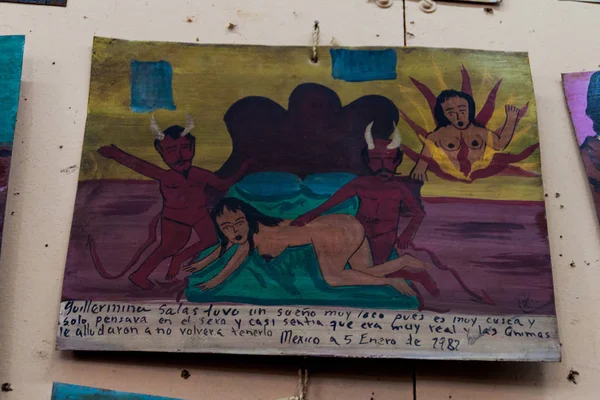 Guillermina Salas tuvo un sueño muy loco pues es muy cusca y
solo pensava en el sexo y casi sentia que era muy real y las Animas
le alludaron a no volvera tenerlo Mexico a 5 Enero de 1982